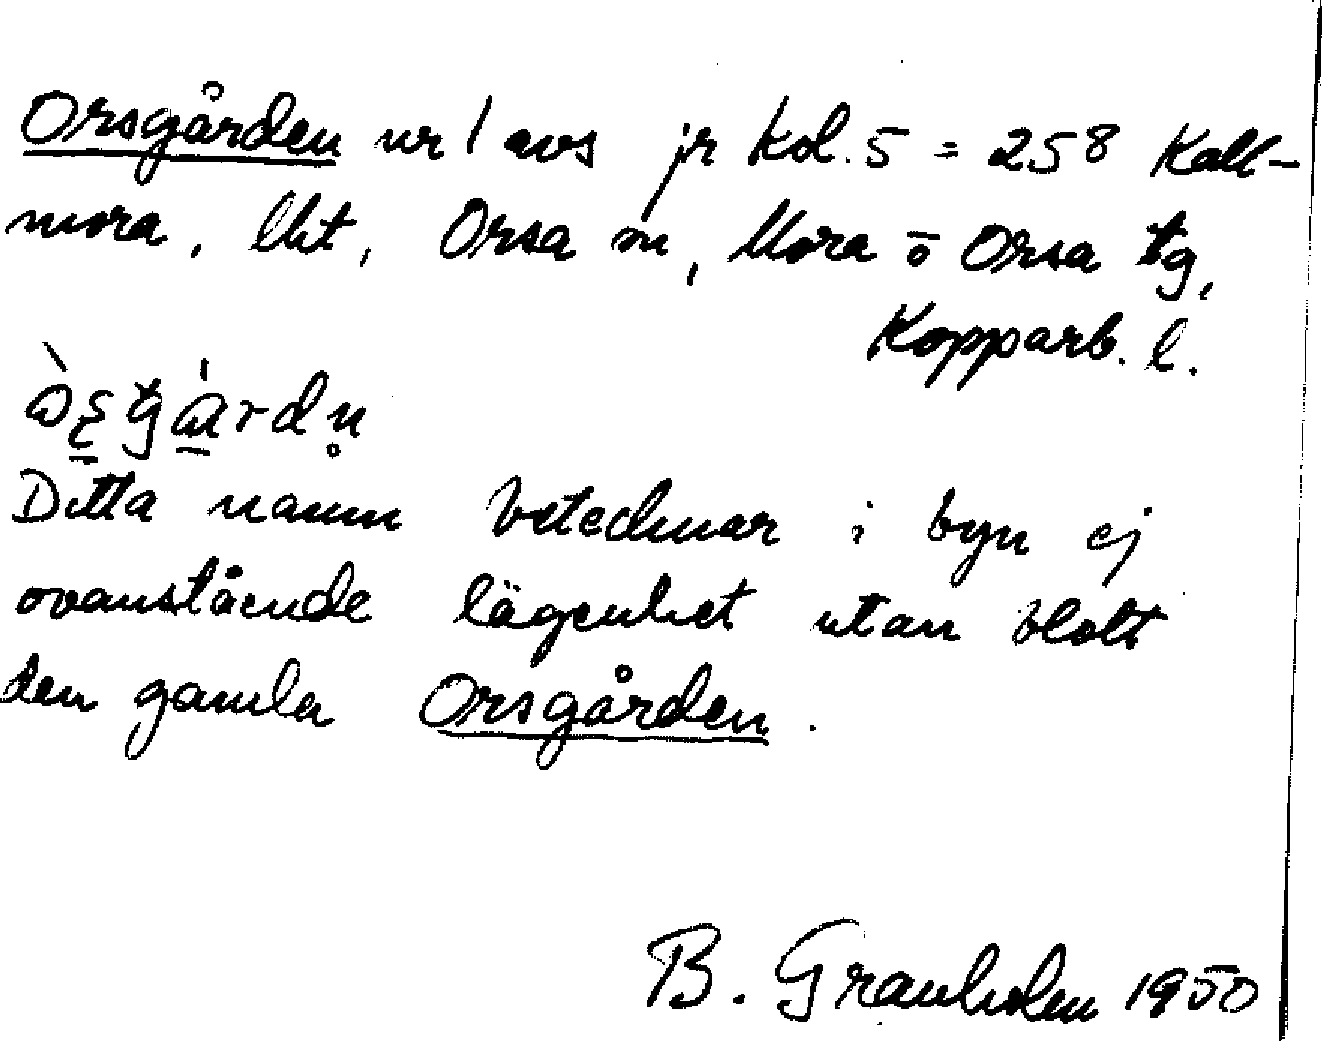 Orsgården nr 1 avs jr kol. 5 = 258 Kall-
mora, lht, Orsa sn, Mora o Orsa tg,
Kopparb. l.
Detta namn betecknar i byn ej
ovanstående lägenhet utan blott
den gamla Orsgården.
B. Granholm 1950